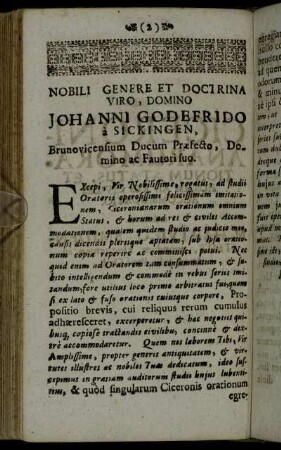 (2)
NOBILI GENERE ET DOCTRINA
VIRO, DOMINO
JOHANNI GODEFRIDO
à SICKINGEN,
Brunovicensium Ducum Præfecto, Do-
mino ac Fautori suo.
EXcepi, Vir Nobilissime, rogatus, ad studii
Oratorii operosissimi felicissimam imitatio-
nem, Ciceronianarum orationum omnium
Status, & horum ad res & civiles Accom-
modationem, quaiem quidem studio ac judicio meo,
ausis dicendis plerisque aptatam, sub ipsa oratio-
num copia reperire ac comminisci potui. Ne
quod enim ad Oratorem tam consummatum, & ju-
dicio intelligendum & commodè in rebus seriis imi-
tandum, fore utilius loco primo arbitratus fui, quam
si ex lato & fuso orationis cujusque corpore, Pro-
positio brevis, cui reliquus rerum cumulus
adhæresceret, excerperetur, & hac negotiis qui-
busq; copiosè tractandis civilibus, concinnè & dex-
trè accommodaretur. Quem nos laborem Tibi, Vir
Amplissime, propter generis antiquitatem, & vir-
tutes illustres ac nobiles Tuas dedicatum, ideo sus-
cepimus in gratiam auditorum studii hujus lubenti-
us, & quòd singularum Ciceronis orationum
egre-